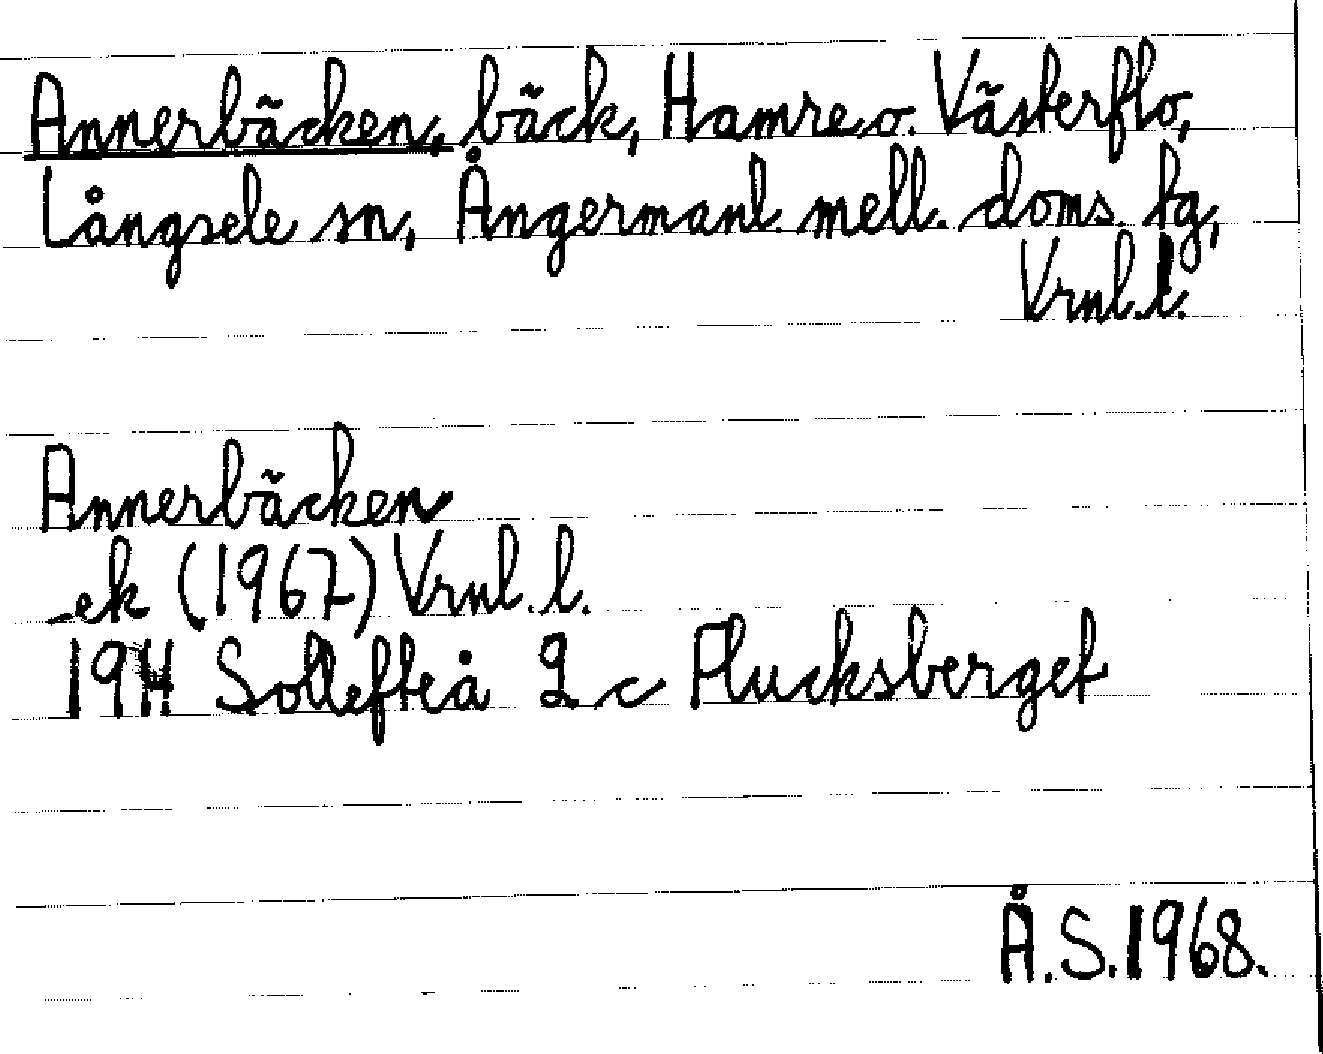 Annerbäcken, bäck, Hamre o. Västerflo,
Långsele sn, Ångermanl. mell. doms. fg,
Vrnl. l.
Annerbäcken
-ek (1967) Vrnl. l.
Sollefteå 2 c Flucksberget
Å.S. 1968.